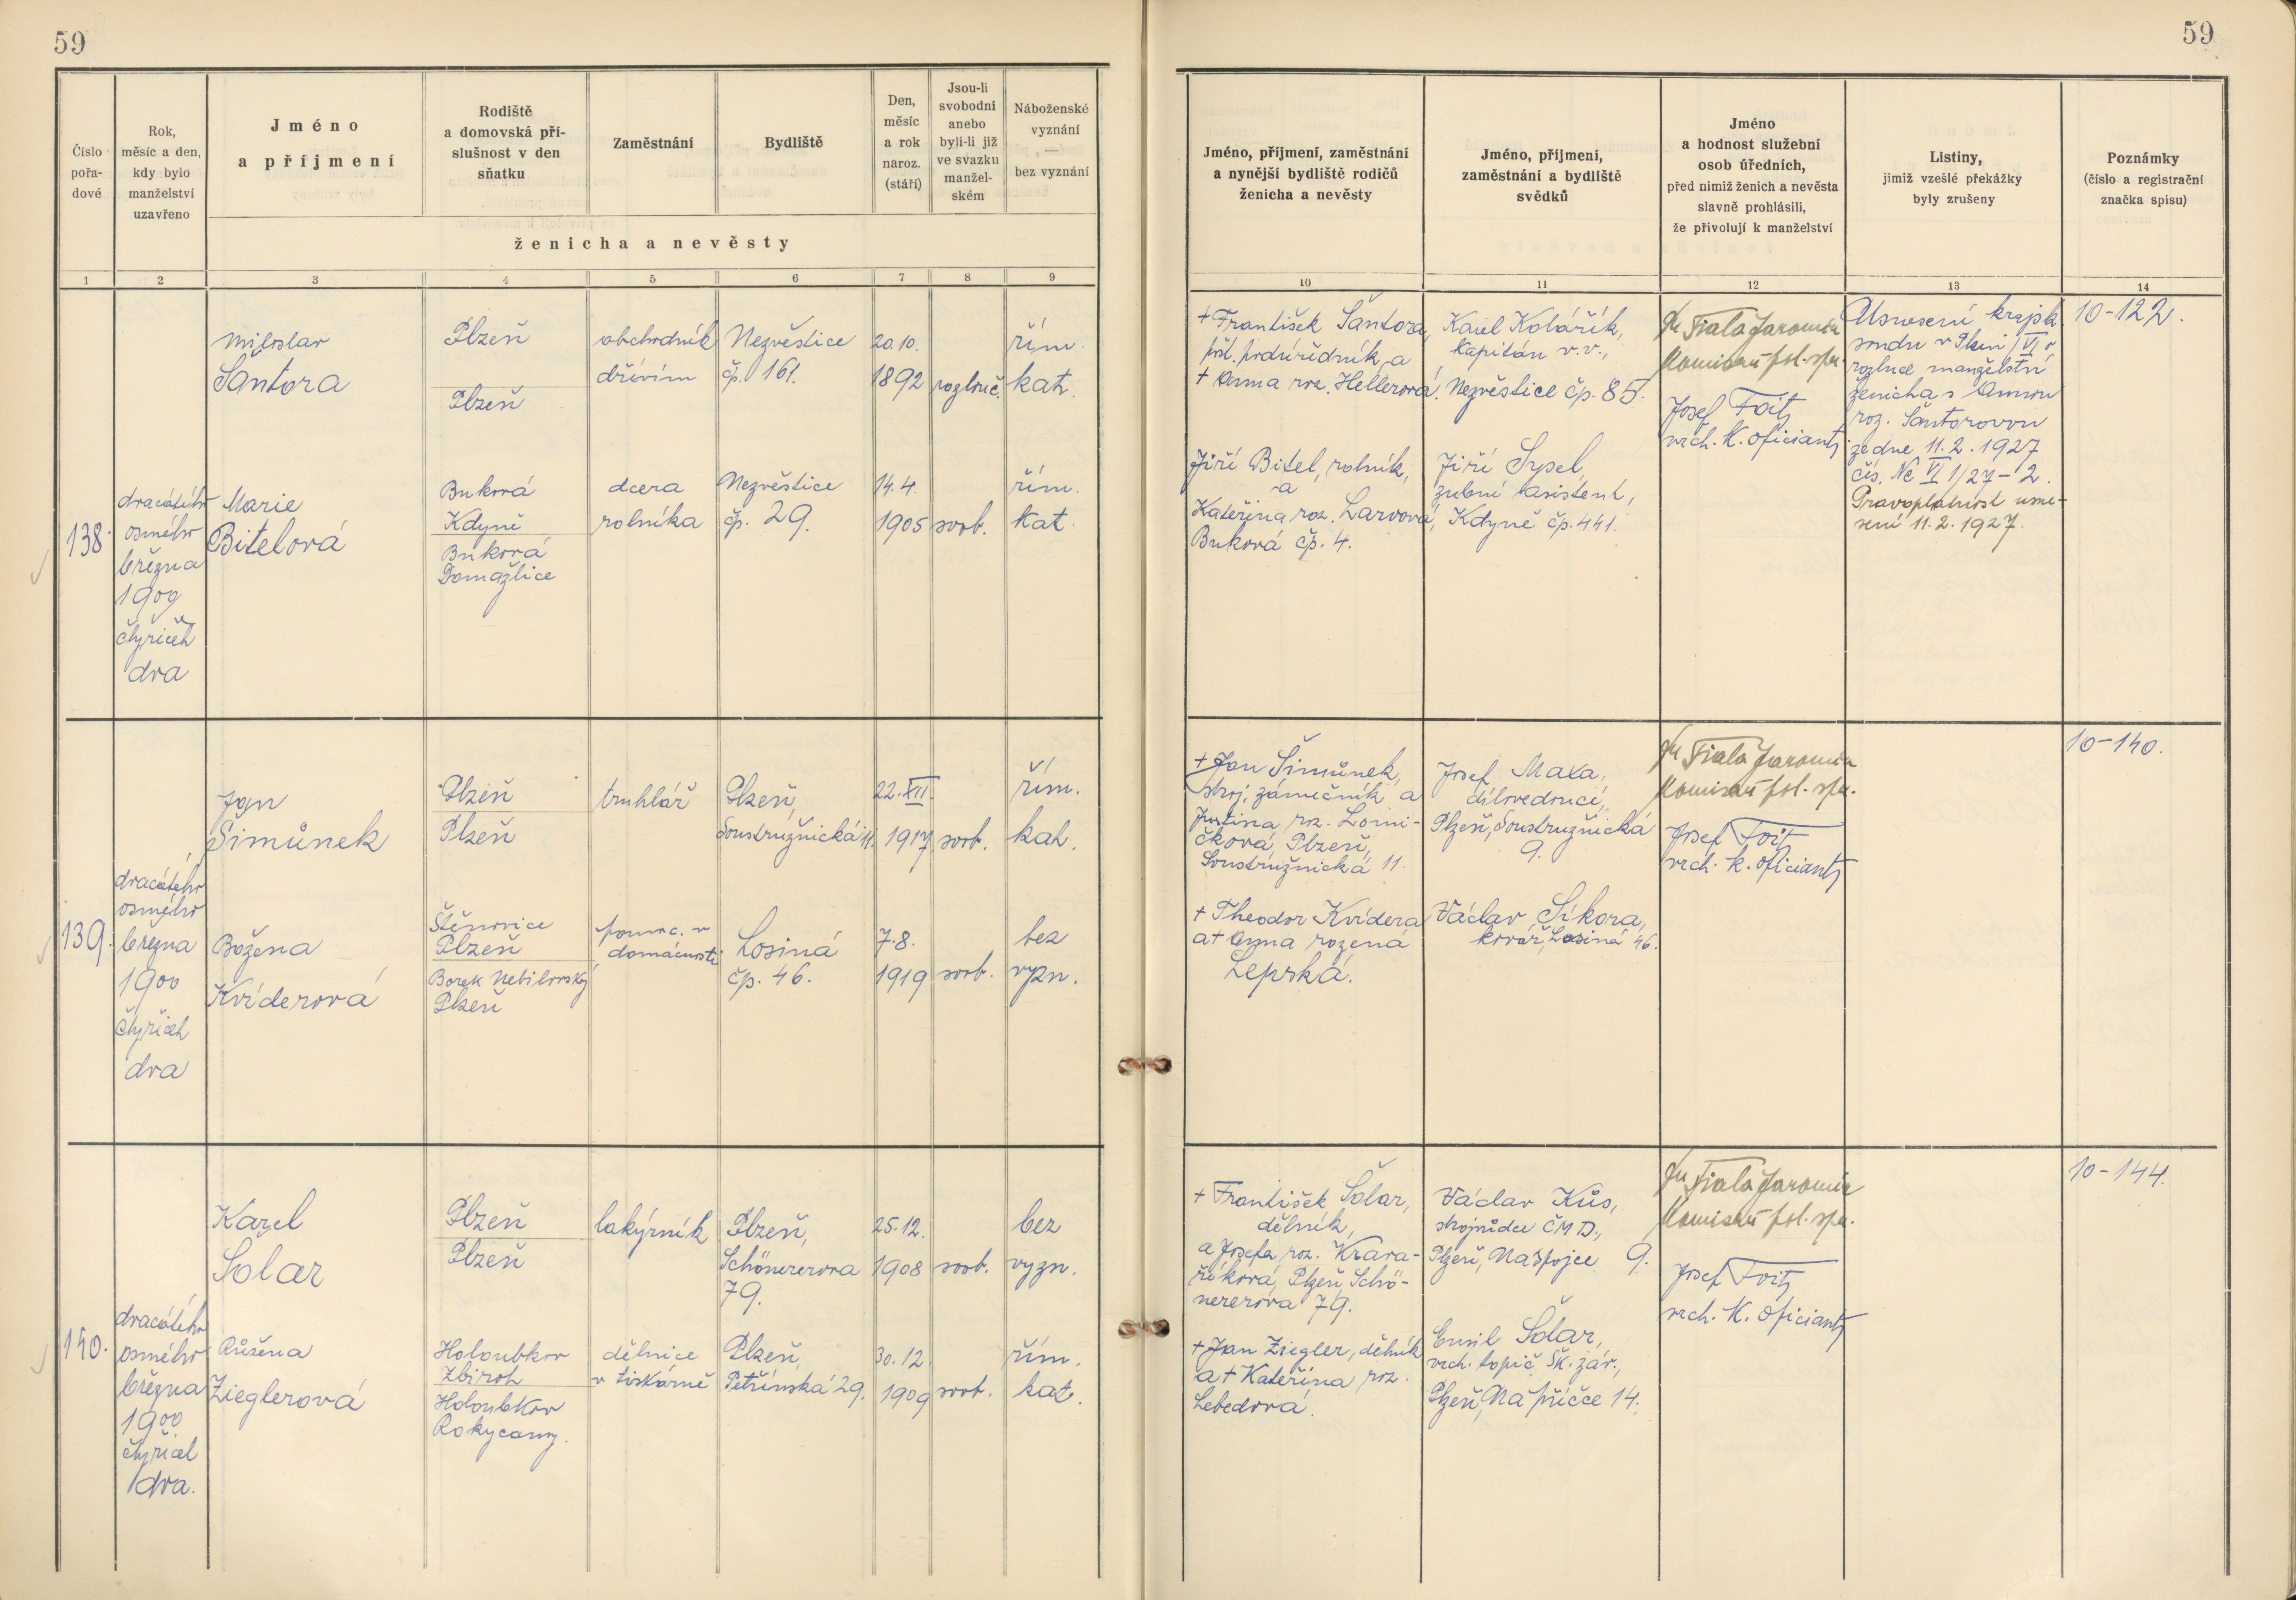 59
59
Číslo
pořa-
dové
Rok,
měsíc a den,
kdy bylo
manželství
uzavřeno
Jméno
a příjmení
Rodiště
a domovská pří-
slušnost v den
sňatku
Zaměstnání
Bydliště
Den,
měsíc
a rok
naroz.
(stáří)
Jsou-li
svobodni
anebo
byli-li již
ve svazku
manžel-
ském
Náboženské
vyznání
—
bez vyznání
ženicha a nevěsty
1 2 3 4 5 6 7 8 9
Jméno, příjmení, zaměstnání
a nynější bydliště rodičů
ženicha a nevěsty
Jméno, příjmení,
zaměstnání a bydliště
svědků
Jméno
a hodnost služební
osob úředních,
před nimiž ženich a nevěsta
slavně prohlásili,
že přivolují k manželství
Listiny,
jimiž vzešlé překážky
byly zrušeny
Poznámky
(číslo a registrační
značka spisu)
10 11 12 13 14
138.
dvacátého
osmého
března
1900
čtyřicet
dva
Miloslav
Šantora
Plzeň
Plzeň
obchodník
dřívím
Nezvěstice
čp. 161.
20.10.
1892
rozlouč.
řím.
kat.
Marie
Bitelová
Buková
Kdyně
Buková
Domažlice
dcera
rolníka
Nezvěstice
čp. 29.
14.4.
1905
svob.
řím.
kat.
+ František Šantora,
pošt. podúředník a
+ Anna roz. Hellerová.
Jiří Bitel, rolník,
a
Kateřina roz. Larvová,
Buková čp. 4.
Karel Kolářík,
kapitán v.v.,
Nezvěstice čp. 85.
Jiří Sypel,
zubní asistent,
Kdyně čp. 441.
Dr Fiala Jaromír
Komisař pol. spr.
Josef Foit,
vrch. k. oficiant,
Usnesení krajsk.
soudu v Plzni VI o
rozluce manželství
ženicha s Annou
roz. Šantorovou
ze dne 11.2.1927
čís. Nc VI 1/27-2.
Pravoplatnost usne-
sení 11.2.1927.
10-122.
139.
dvacátého
osmého
března
1900
čtyřicet
dva
Jan
Šimůnek
Plzeň
Plzeň
truhlář
Plzeň,
Soustružnická 11.
22.XII.
1917
svob.
řím.
kat.
Božena
Kviderová
Štěnovice
Plzeň
Borek Nebilovský
Plzeň
pomoc. v
domácnosti
Losiná
čp. 46.
7.8.
1919
svob.
bez
vyzn.
+ Jan Šimůnek,
stroj. zámečník a
Justina roz. Lomi-
čková, Plzeň,
Soustružnická 11.
+ Theodor Kvidera
a + Anna rozená
Lepská.
Josef Maxa,
dílovedoucí,
Plzeň, Soustružnická
9.
Václav Sikora,
kovář, Losiná 46.
Dr Fiala Jaromír
Komisař pol. spr.
Josef Foit,
vrch. k. oficiant,
10-140.
140.
dvacátého
osmého
března
1900
čtyřicet
dva.
Karel
Šolar
Plzeň
Plzeň
lakýrník
Plzeň,
Schönererova
79.
25.12.
1908
svob.
bez
vyzn.
Růžena
Zieglerová
Holoubkov
Zbiroh
Holoubkov
Rokycany.
dělnice
v tiskárně
Plzeň,
Petřínská 29.
30.12.
1909
svob.
řím.
kat.
+ František Šolar,
dělník,
a Josefa roz. Krava-
říková, Plzeň, Schö-
nererova 79.
+ Jan Ziegler, dělník
a + Kateřina roz.
Lebedová.
Václav Kůs,
strojvůdce ČMD.,
Plzeň, Na Spojce 9.
Emil Šolar,
vrch. topič Šk. záv.,
Plzeň, Na příčce 14.
Dr Fiala Jaromír
Komisař pol. spr.
Josef Foit,
vrch. k. oficiant,
10-144.